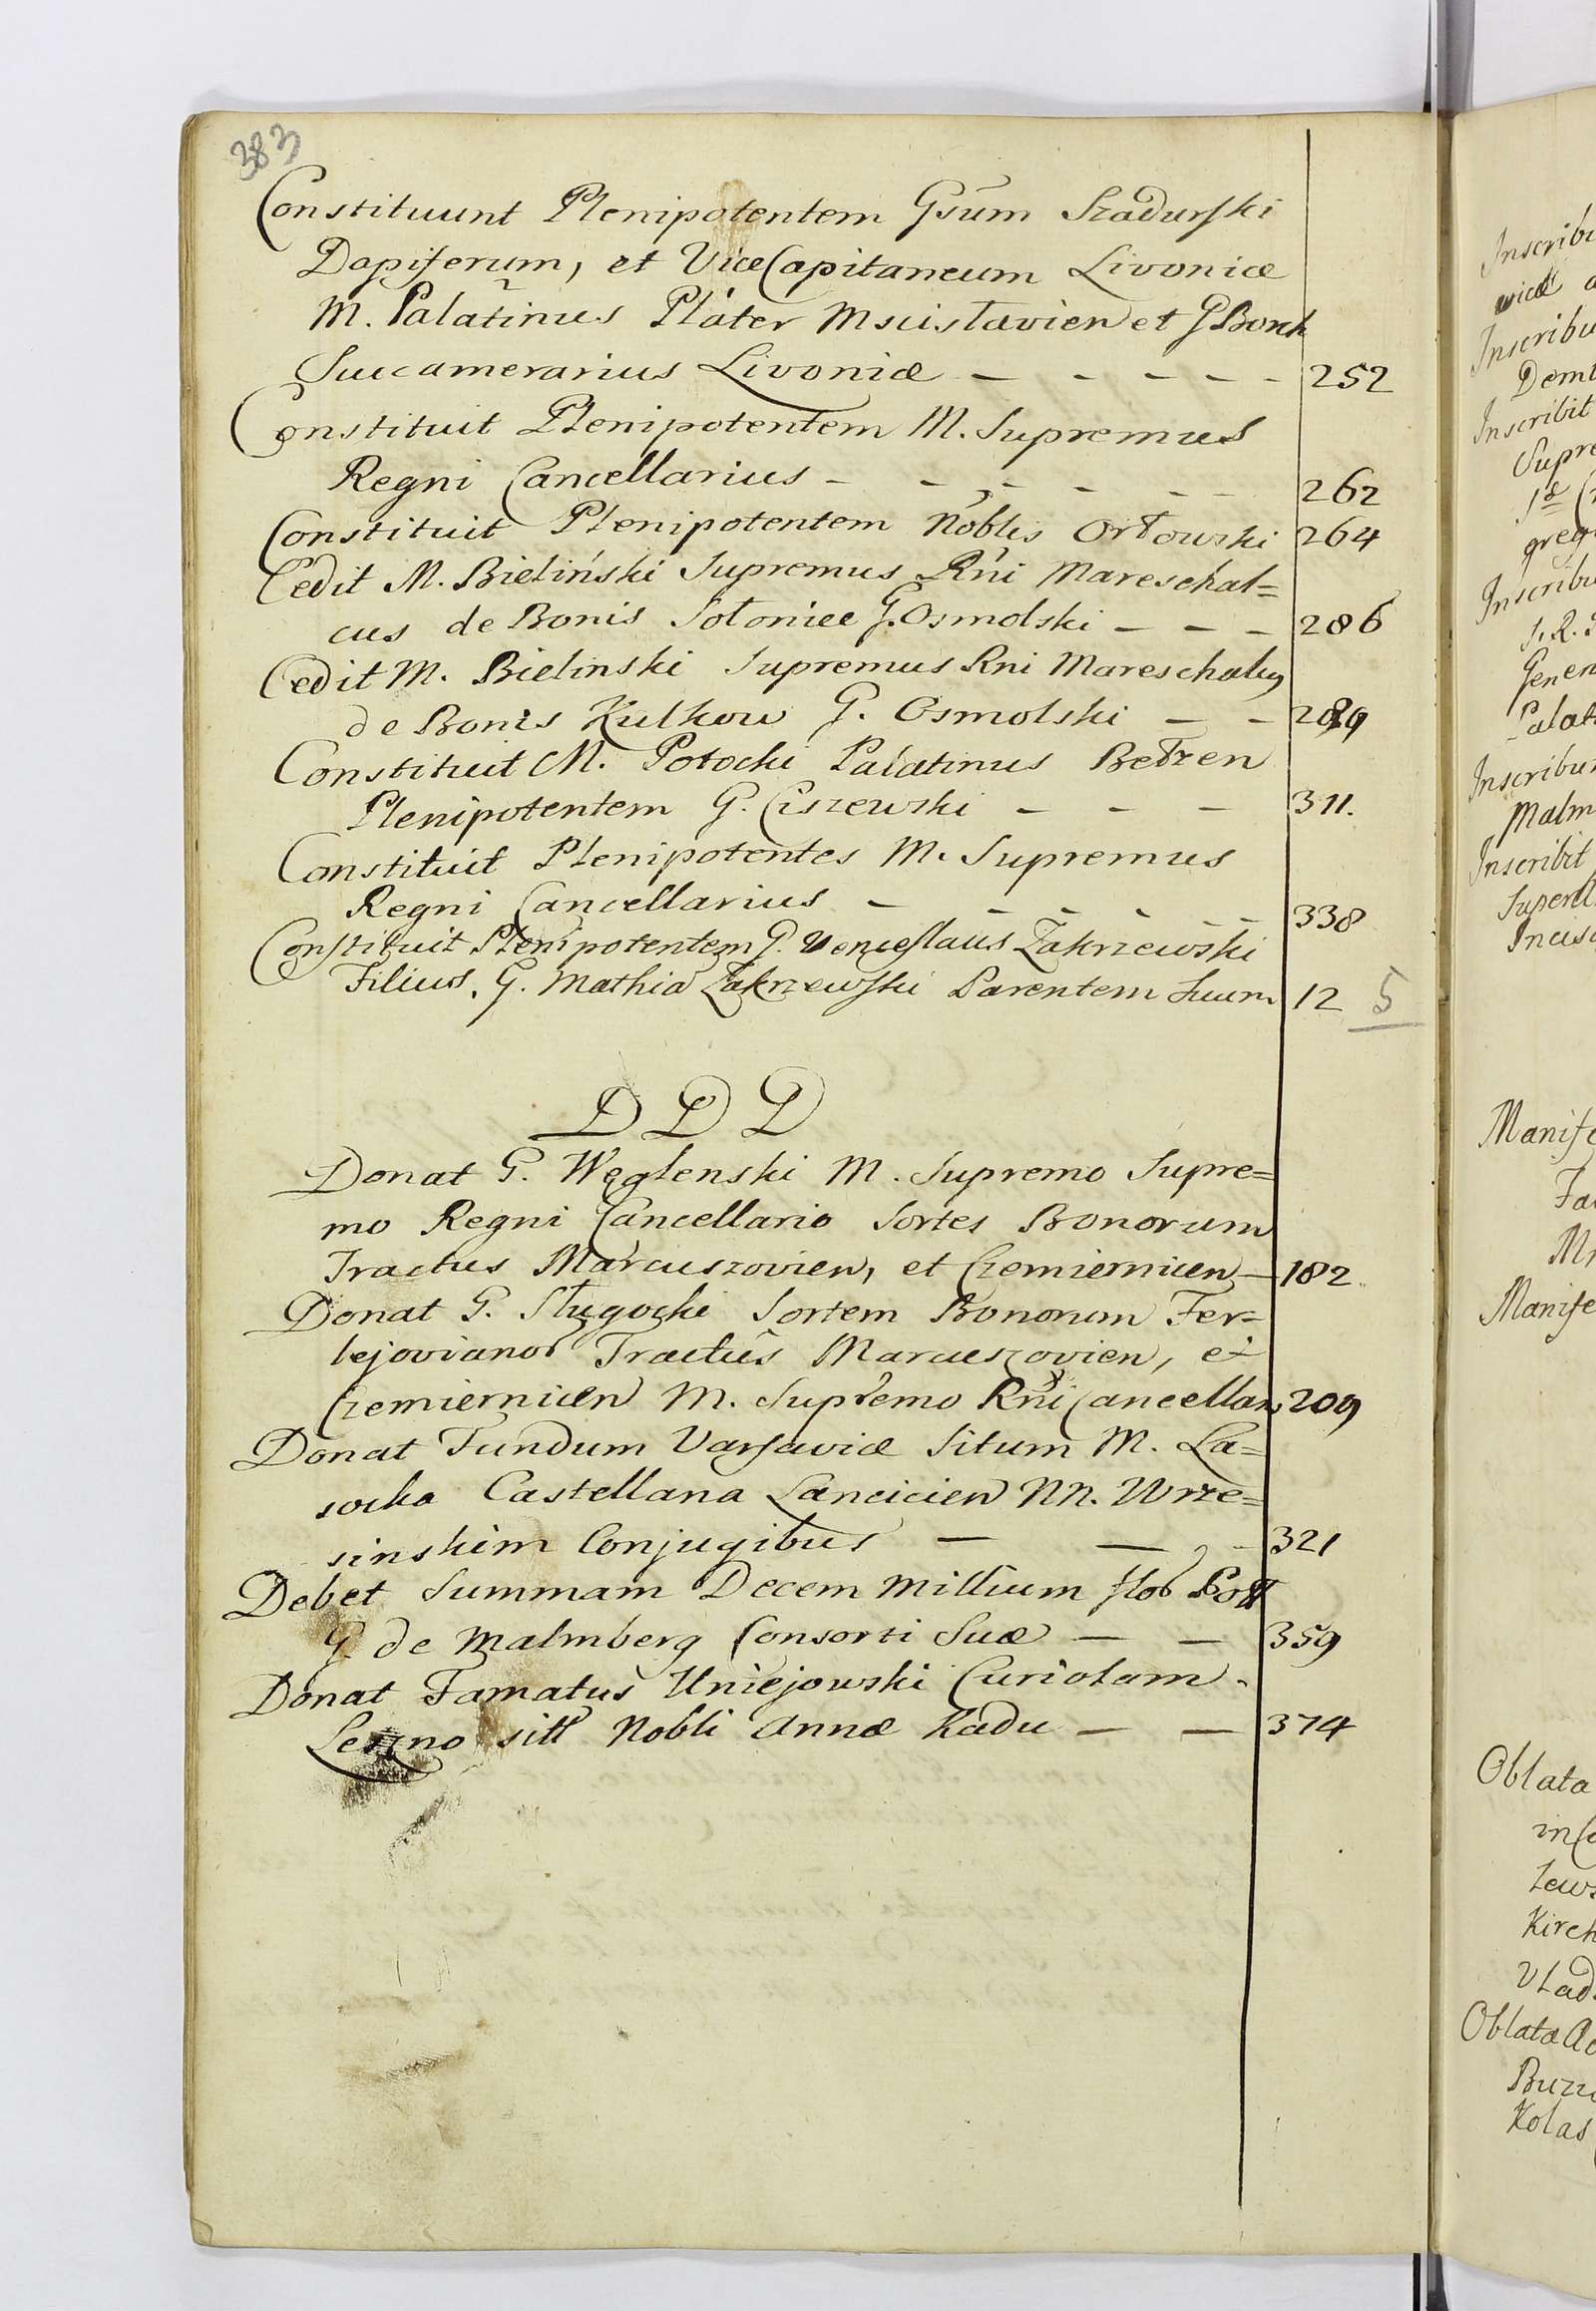 383
Constituunt Plenipotentem Gsum Szadurski
Dapiferum, et ViceCapitaneum Livoniæ
M. Palatinus Plater Mscislavien et G Borch
Succamerarius Livoniæ — — — — — 252
Constituit Plenipotentem M. Supremus
Regni Cancellarius — — — — — — 262
Constituit Plenipotentem Noblis Orłowski 264
Cedit M. Bieliński Supremus Rni Mareschal=
cus de Bonis Sołonice G. Osmolski — — — 286
Cedit M. Bielinski Supremus Rni Mareschalcus
de Bonis Kulkow G. Osmolski — — 289
Constituit M. Potocki Palatinus Bełzen
Plenipotentem G. Ciszewski — — — 311.
Constituit Plenipotentes M. Supremus
Regni Cancellarius — — — — — — 338
Constituit Plenipotentem G. Venceslaus Zakrzewski
Filius, G. Mathia Zakrzewski Parentem Suum 12 5
D D D
Donat G. Węglenski M. Supremo Supre=
mo Regni Cancellario Sortes Bonorum
Tractus Marcuszovien, et Czemiernicen — 182
Donat G. Sługocki Sortem Bonorum Fer=
lejovianor Tractus Marcuszovien, et
Czemiernicen M. Supremo Rni Cancellar 209
Donat Fundum Varsaviæ Situm M. La=
socka Castellana Lancicien NN. Wrze=
sinskim Conjugibus — — — 321
Debet Summam Decem Millium flor Poll
G. de Malmberg Consorti Suæ — — 359
Donat Famatus Uniejowski Curiolam
Leszno sitt Nobli Annæ Kadu — — 374
Inscribu
Inscribu
Inscribit
Supre
Inscribu
Palat
Inscribu
Malm
Inscribit
Manife
Manife
Oblata
Kirch
Vlad
Oblata Ac
Kolas